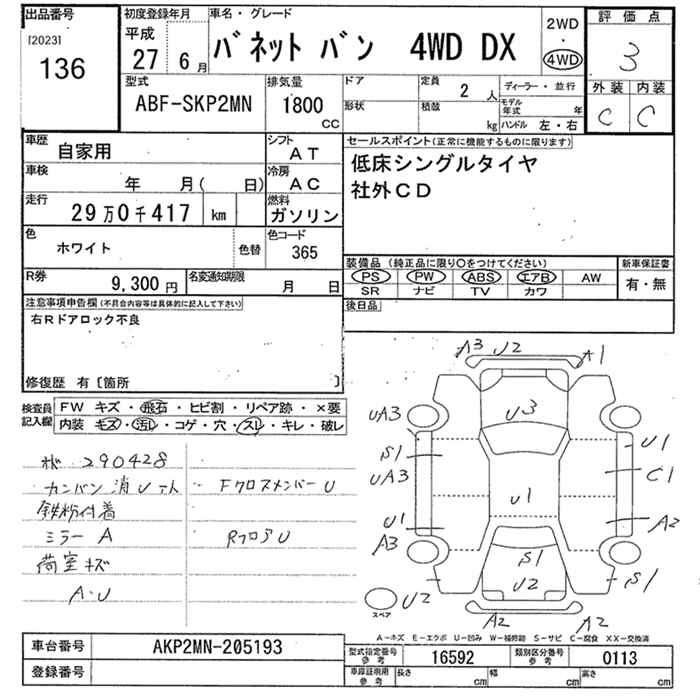 出品番号 初度登録年月 車名・グレード 評価点
[2023] 136 平成 27 6月 バネット バン 4WD DX 2WD・4WD 3
型式 排気量 ドア 定員 ディーラー・並行 外装 内装
ABF-SKP2MN 1800CC 2人 C C
形状 積載 kg モデル年式 年
ハンドル 左・右
車歴 自家用 シフト AT セールスポイント(正常に機能するものに限ります)
車検 年 月( 日) 冷房 AC 低床シングルタイヤ
走行 29万0千417 km 燃料 ガソリン 社外CD
色 ホワイト 色替 色コード 365
R券 9,300円 名変通知期限 月 日
装備品(純正品に限り○をつけてください) 新車保証書
PS PW ABS エアB AW 有・無
SR ナビ TV カワ
後日品
注意事項申告欄(不具合内容等は具体的に記入して下さい)
右Rドアロック不良
修復歴 有[箇所 ]
検査員記入欄 FW キズ・飛石・ヒビ割・リペア跡・×要
内装 キズ・汚レ・コゲ・穴・スレ・キレ・破レ
290428
カンバン消U
FクロスメンバーU
鉄粉付着
ミラー A
RフロアU
荷室キズ
A・U
A3 U2 A1
U3
UA3
S1 U1
UA3 C1
U1 U1 A2
A3
S1
U2 S1
スペア U2
A2 A2
A-キズ E-エクボ U-凹み W-補修跡 S-サビ C-腐食 XX-交換済
車台番号 AKP2MN-205193
型式指定番号 参考 16592 類別区分番号 参考 0113
登録番号
車庫証明用 参考 長さ cm 幅 cm 高さ cm